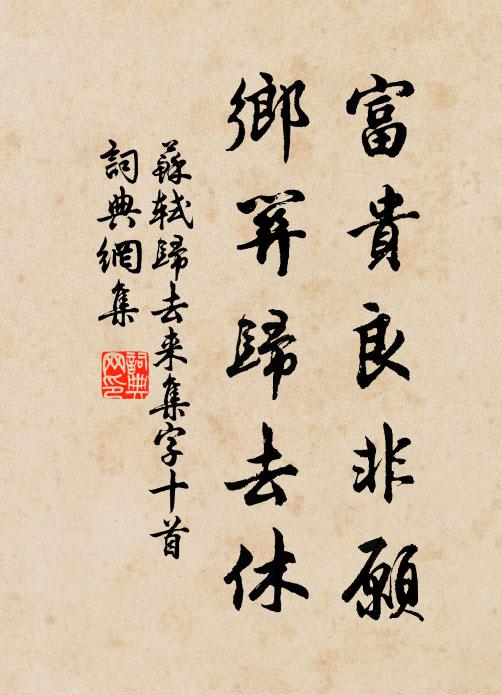 富貴良非願
鄉關歸去休
蘇軾歸去来集字十首
詞典網集
詞典网印